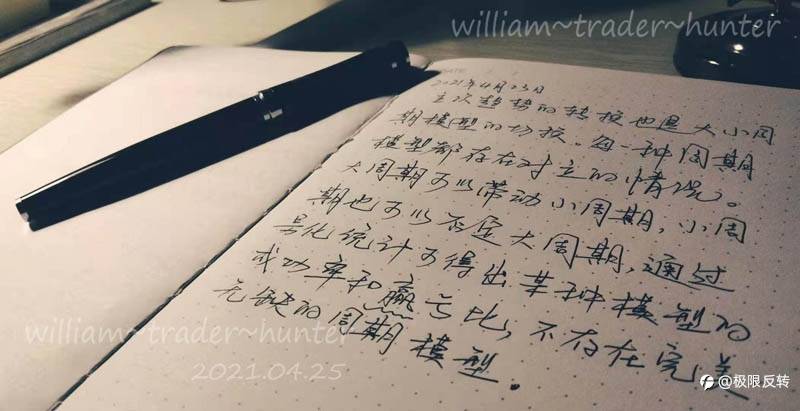 william~trader~hunter
2021年4月23日
主次趋势的转换也是大小周
期模型的切换。每一种周期
模型都存在对立的情况。
大周期可以带动小周期,小周
期也可以否定大周期,通过
量化统计可得出某种模型的
成功率和赢亏比,不存在完美
无缺的周期模型.
william~trader~hunter
2021.04.25
@极限反转